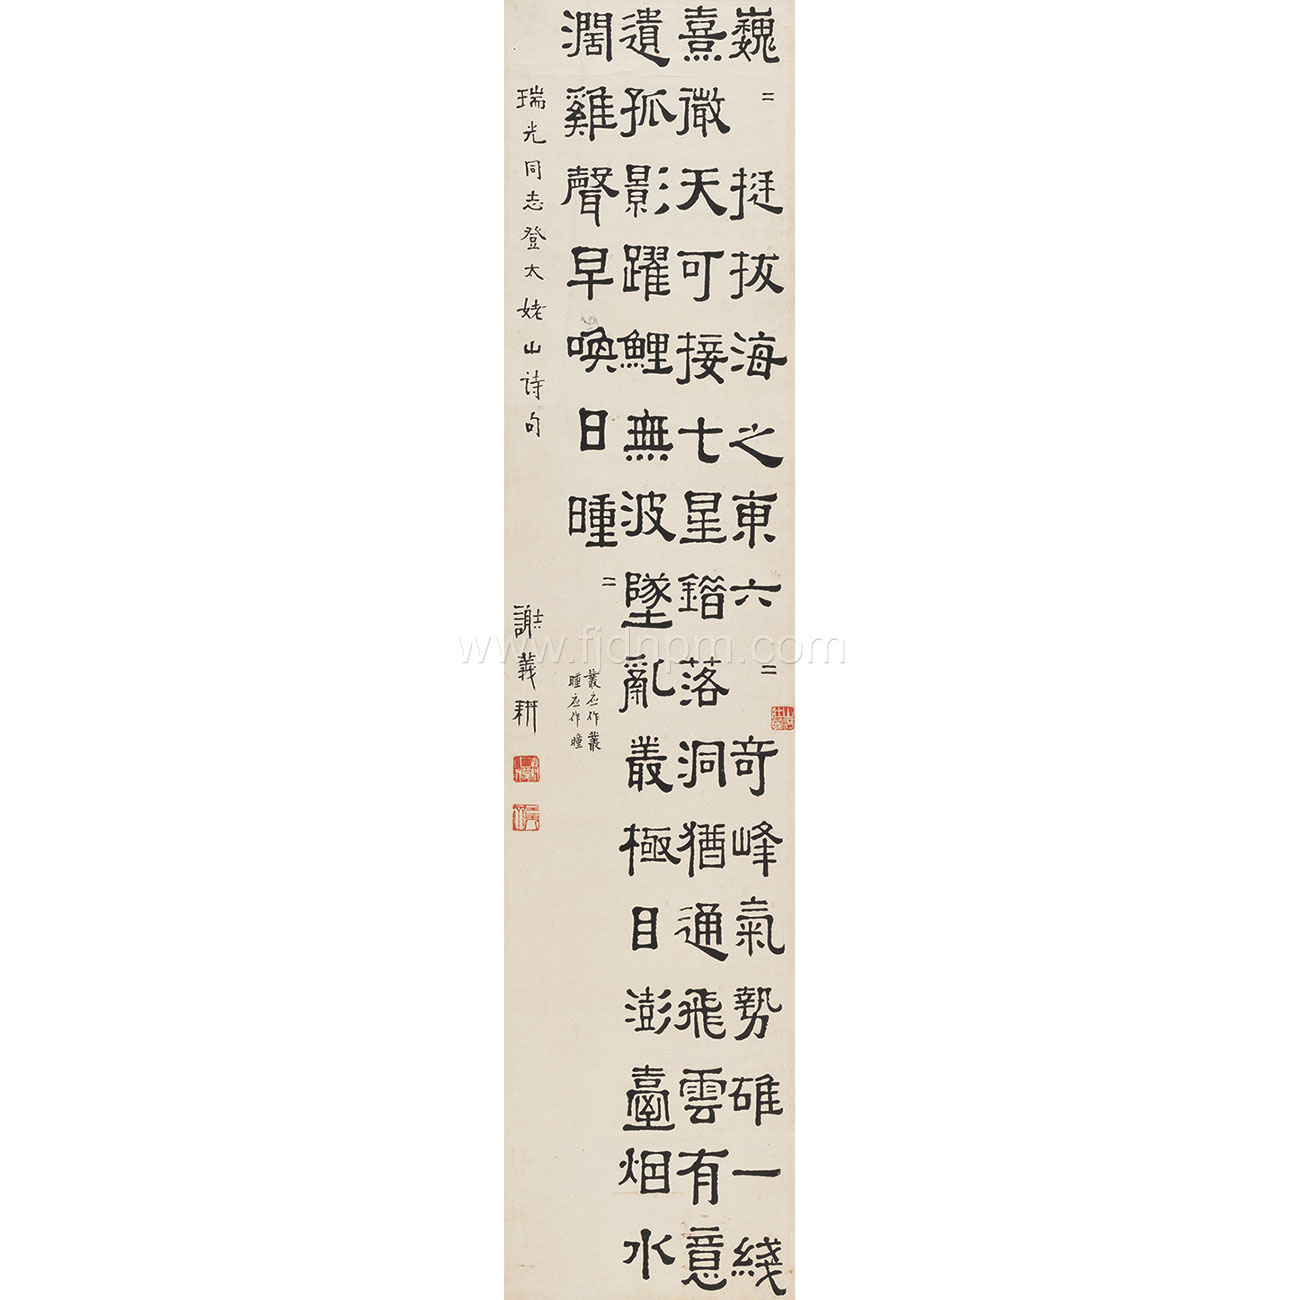 巍〻挺拔海之東六〻奇峰氣勢雄一綫
熹微天可接七星錯落洞猶通飛雲有意
遺孤影躍鯉無波墜亂叢極目澎臺烟水
濶雞聲早喚日曈〻
叢应作叢
曈应作曈
瑞光同志登太姥山诗句
謝義耕
www.fjdhpm.com